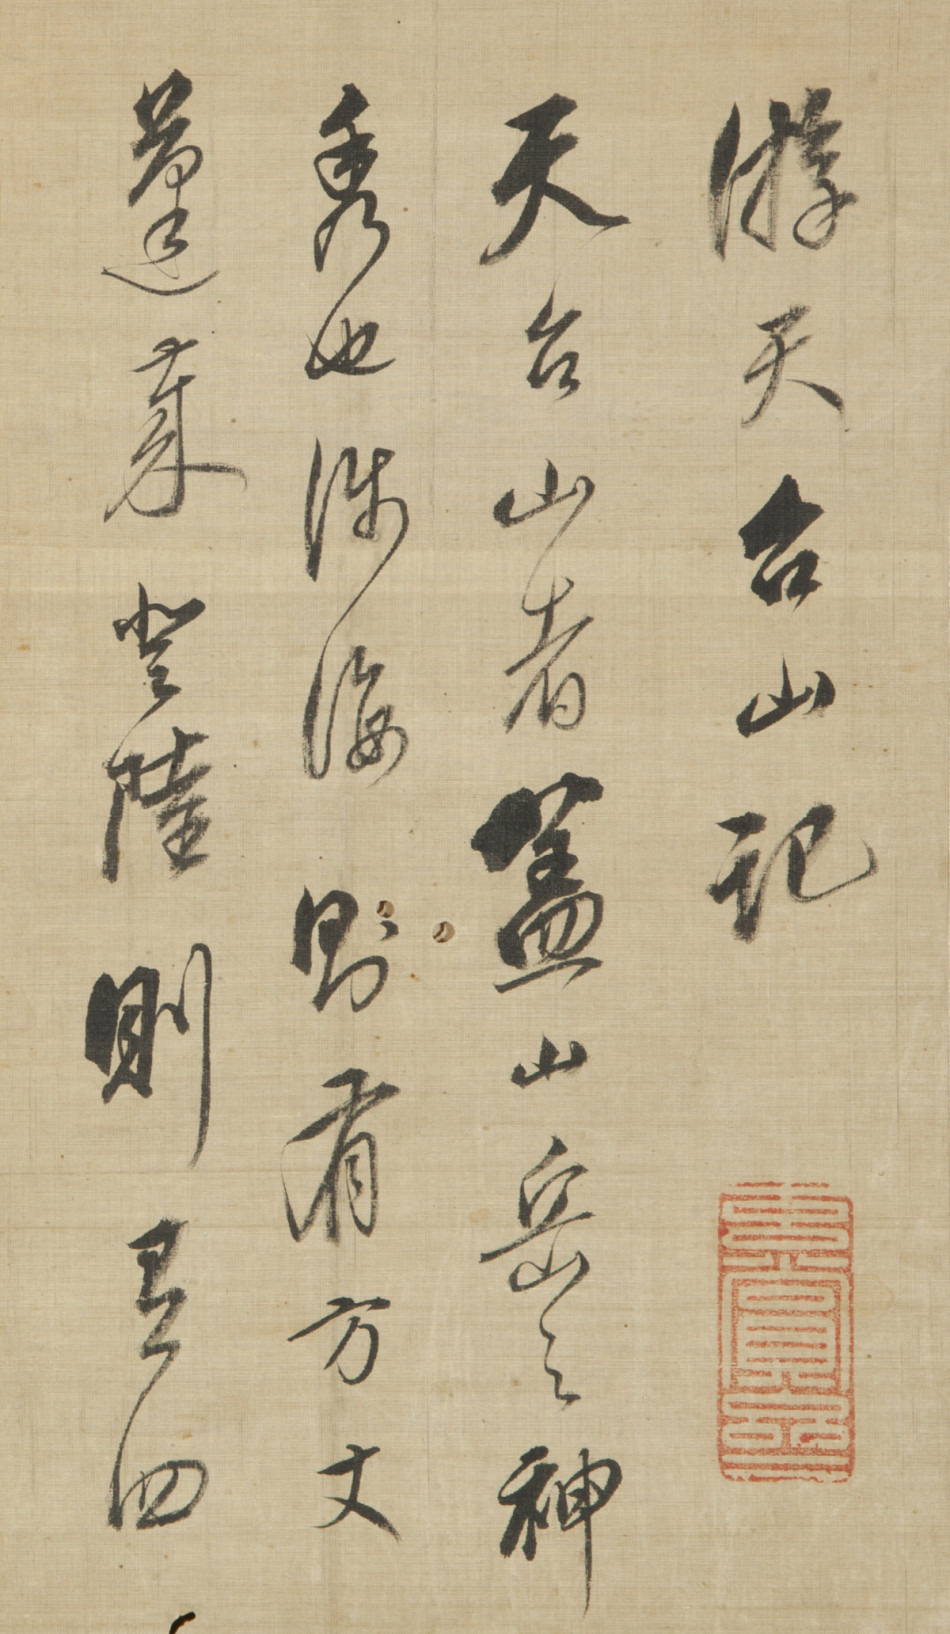 游天台山記
天台山者蓋山岳之神
秀也涉海則有方丈
蓬萊登陸則有四
玄賞齋